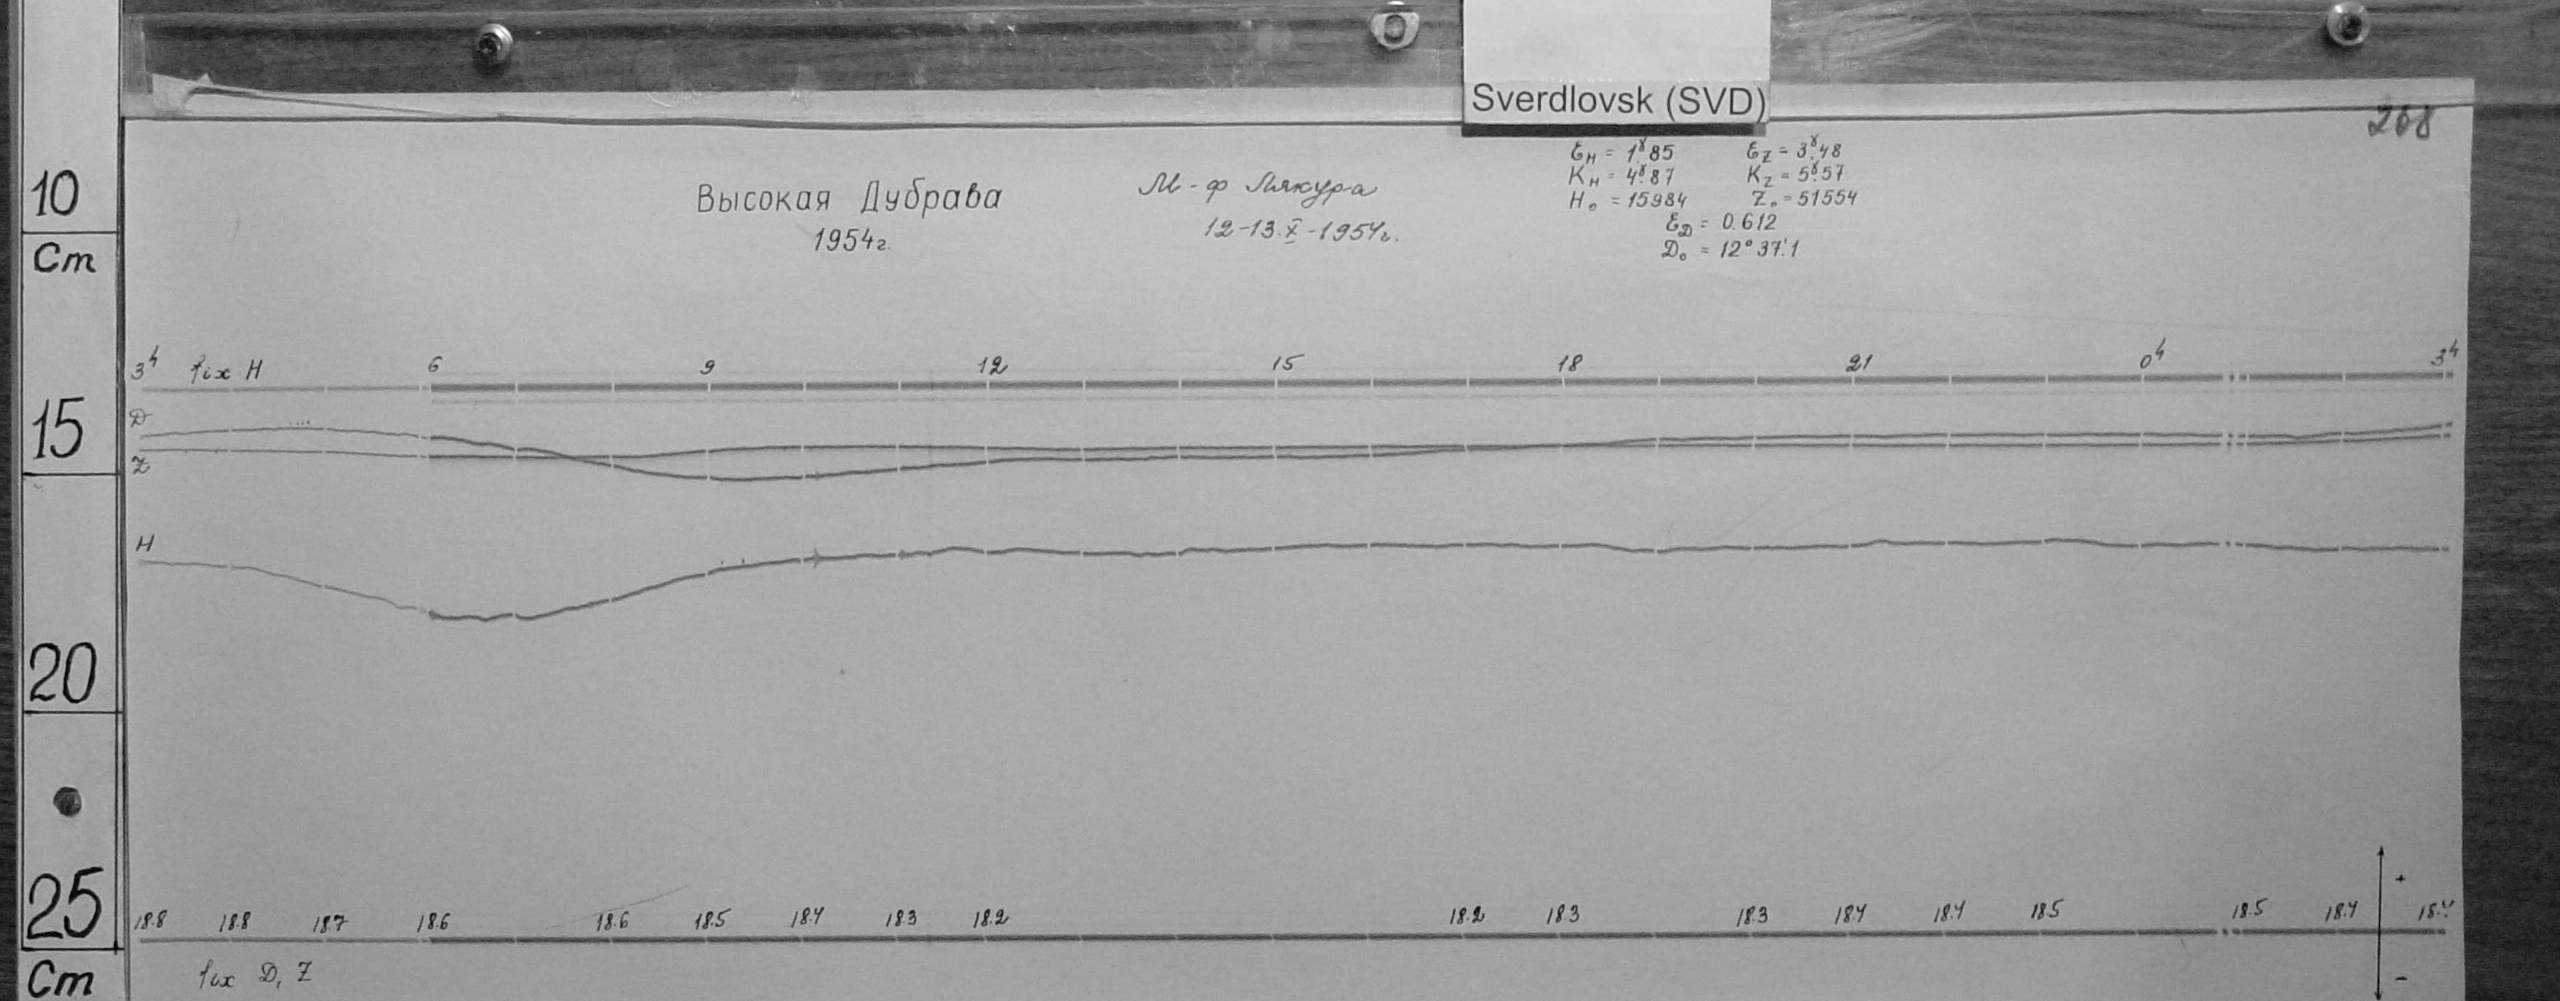 Sverdlovsk (SVD)
268
10
Cm
15
20
25
Cm
Высокая Дубрава
1954г.
М-ф Лякура
12-13.X-1954г.
Ɛ_H = 1.ˠ85 Ɛ_Z = 3.ˠ48
K_H = 4.ˠ87 K_Z = 5.ˠ57
H₀ = 15984 Z₀ = 51554
Ɛ_D = 0.612
D₀ = 12° 37'.1
3ʰ fix H 6 9 12 15 18 21 0ʰ 3ʰ
D
Z
H
18.8 18.8 18.7 18.6 18.6 18.5 18.4 18.3 18.2 18.2 18.3 18.3 18.4 18.4 18.5 18.5 18.4 18.4
+
fix D, Z
-